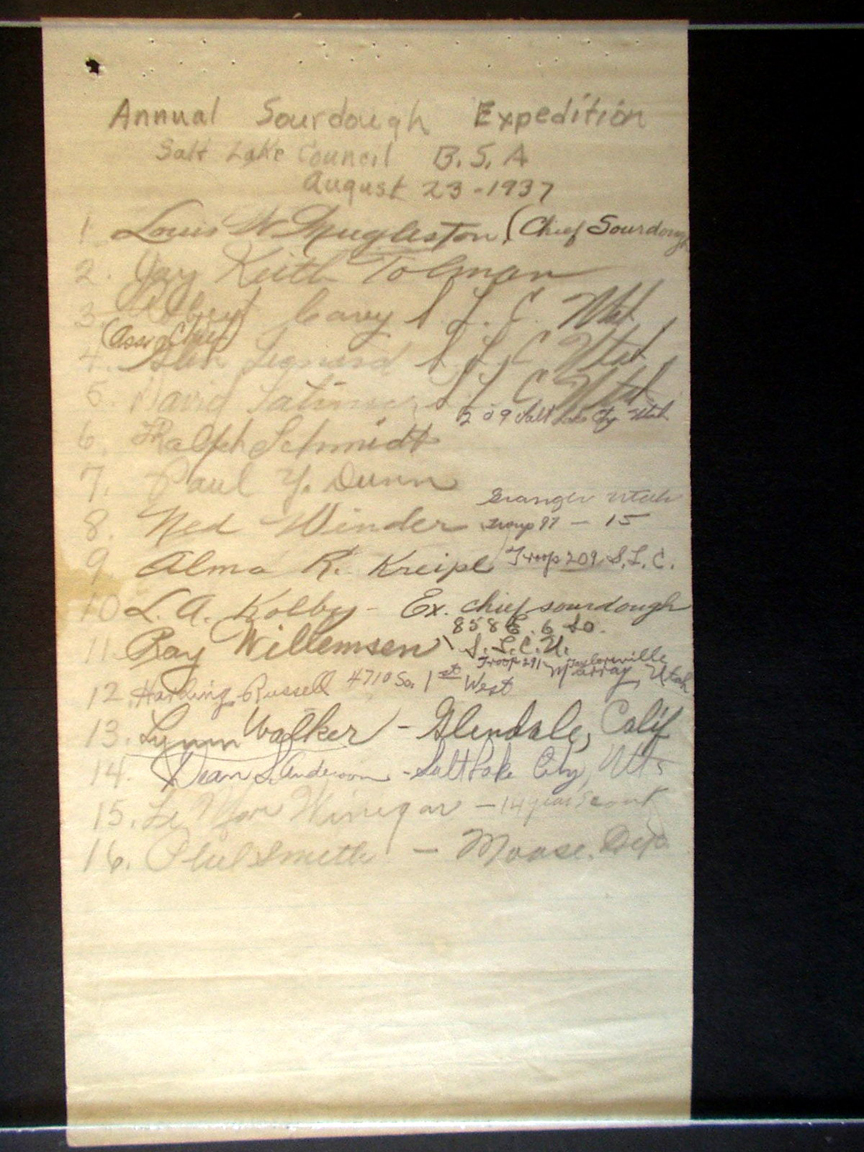 Annual Sourdough Expedition
Salt Lake Council B.S.A
August 23-1937
1. Louis W. Mugleston (Chief Sourdough
2. Jay Keith Tolman
3. Carey S. L. C. Utah
(Ass. Chief)
4. S. L. C Utah
5. David S L C Utah
209 Salt Lake City Utah
6. Ralph Schmidt
7. Paul Y. Dunn
Granger Utah
8. Ned Winder Troop 97 - 15
9 Alma R. Kreipl Troop 209 S.L.C.
10 L.A. Kolby - Ex. chief sourdough
858 E. 6 So.
11. Ray Willemsen S.L.C.U.
Troop 291 Taylorsville
12. Harding Russell 4710 So. 1st West Murray, Utah
13. Lynn Walker - Glendale, Calif
14. Dean S. Anderson - Salt Lake City, Ut.
15. Le Mar Winegar - 14 year Scout
16. Phil Smith - Moose.